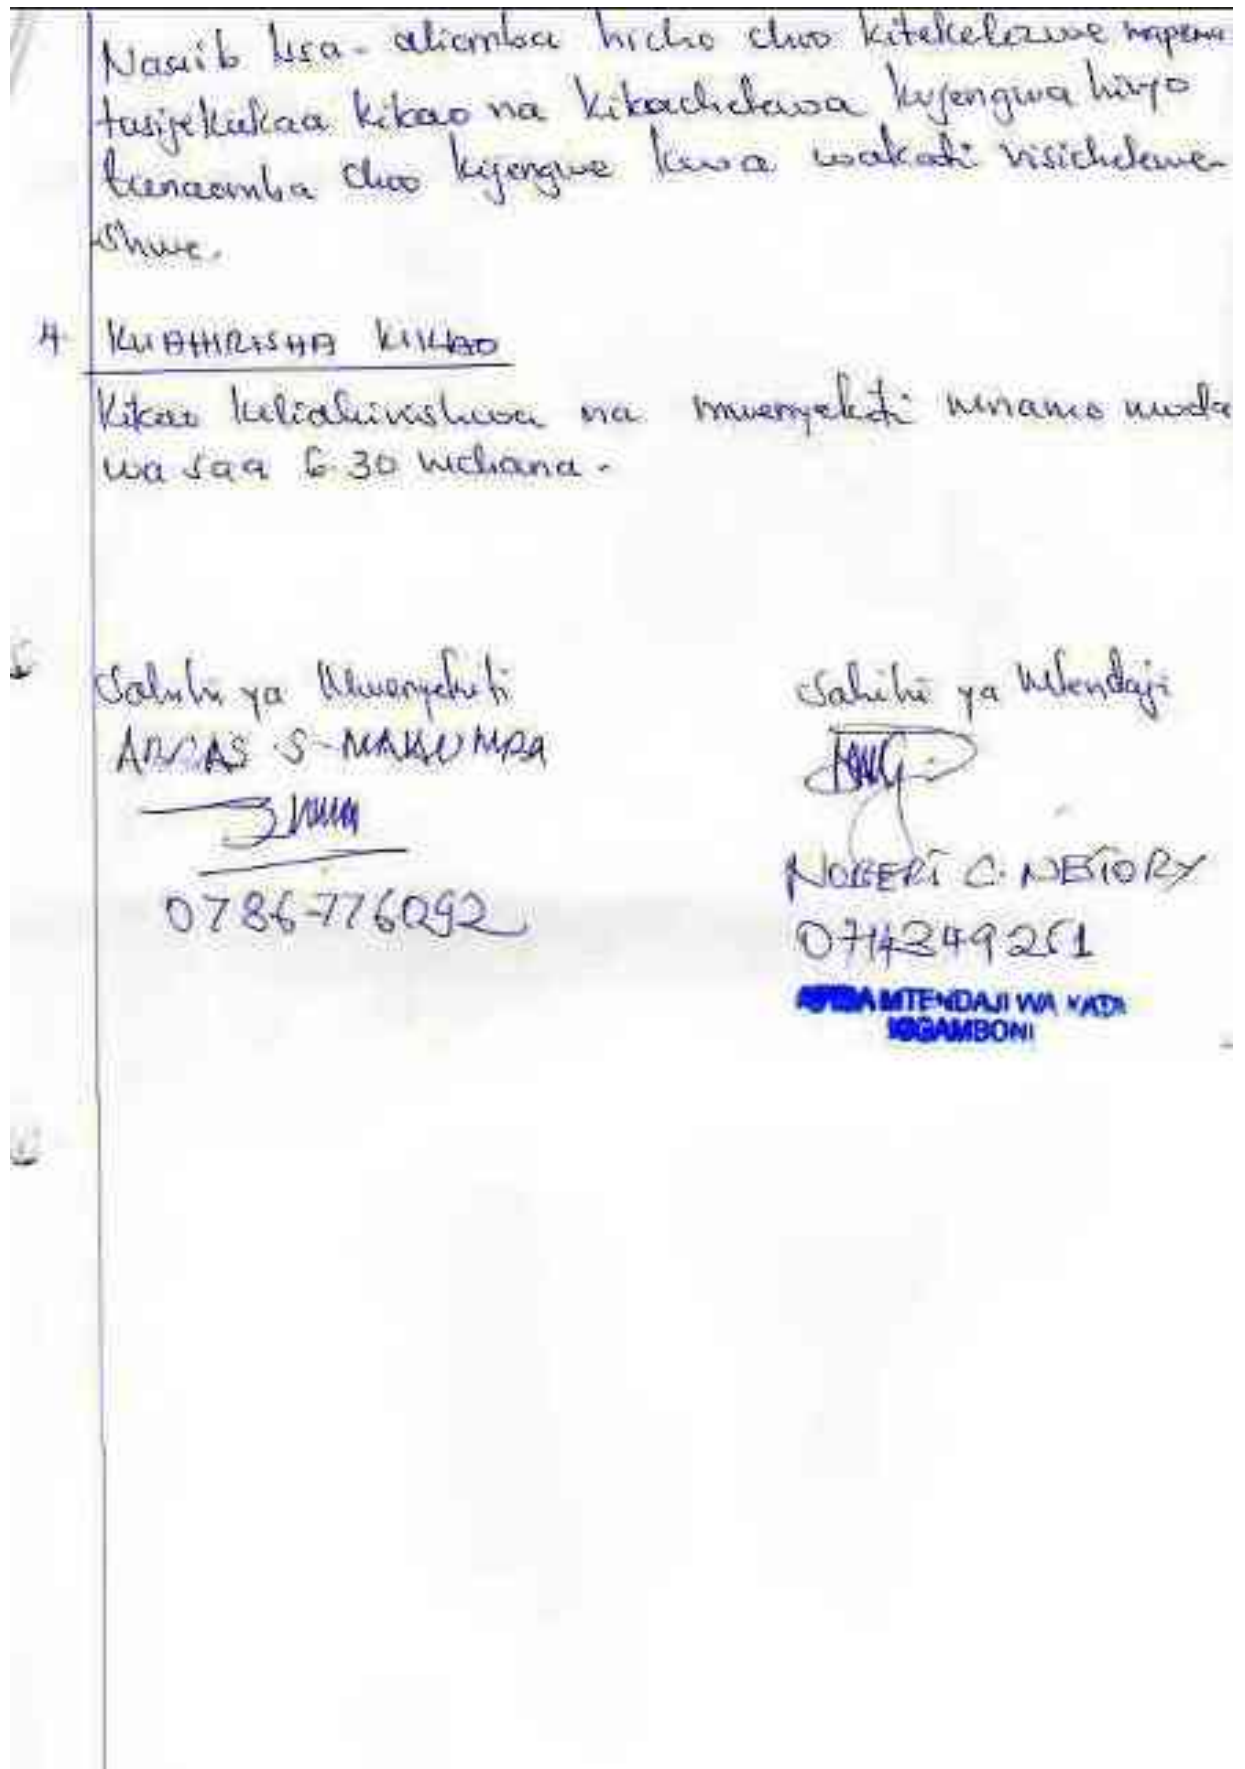 Nasib Issa - aliomba hicho choo kitekelezwe mapema
tusijekukaa kikao na kikachelewa kujengwa hivyo
tunaomba choo kijengwe kwa wakati visichelewe-
shwe.
4. KUAHIRISHA KIKAO
Kikao kiliahirishwa na mwenyekiti mnamo muda
wa saa 6:30 mchana.
Sahihi ya Mwenyekiti
S. MAKUMBA
0786-776092
Sahihi ya Mtendaji
NOBERT C. NESTORY
0714349251
AFISA MTENDAJI WA KATA
KIGAMBONI